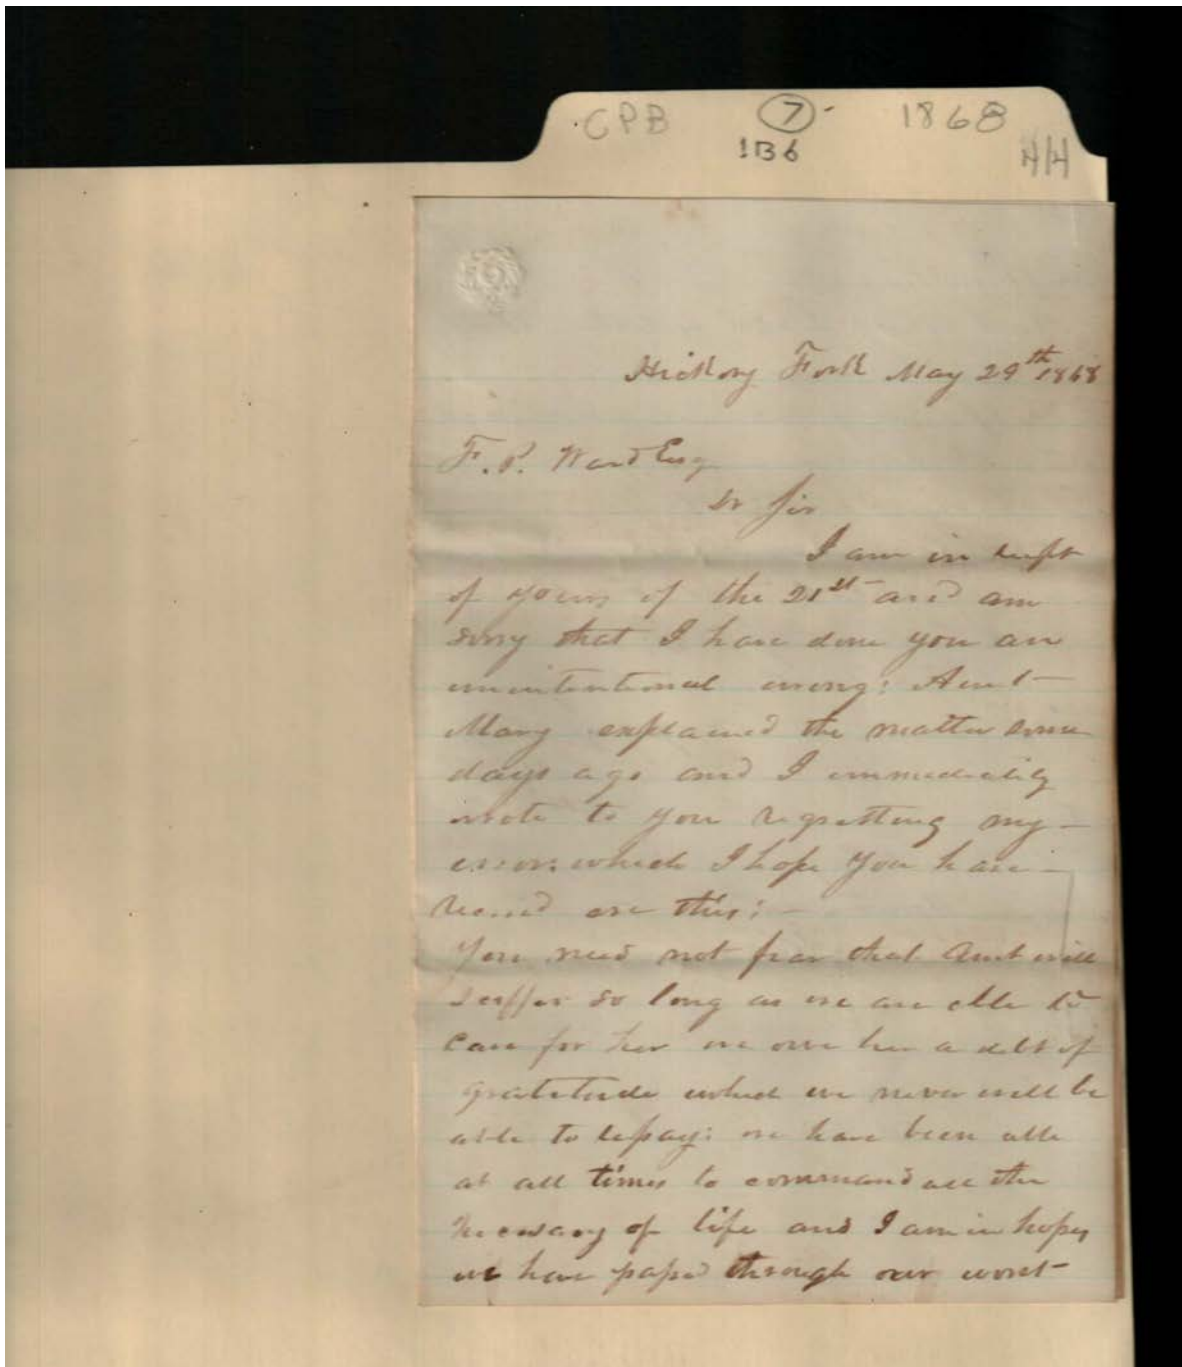 CPB 7 1868
1B6
HH
Hickory Fork May 29th 1868
F. P. Ward Esq
Dr Sir
I am in recpt
of yours of the 21st and am
sorry that I have done you an
unintentional wrong: Aunt
Mary explained the matter some
days ago and I immediatly
wrote to you regretting my
error which I hope you have
recevd ere this;
You need not fear that Aunt will
suffer so long as we are able to
care for her we owe her a debt of
gratitude which we never will be
able to repay: we have been able
at all times to command all the
of life and I am in hopes
we have passd through our worst